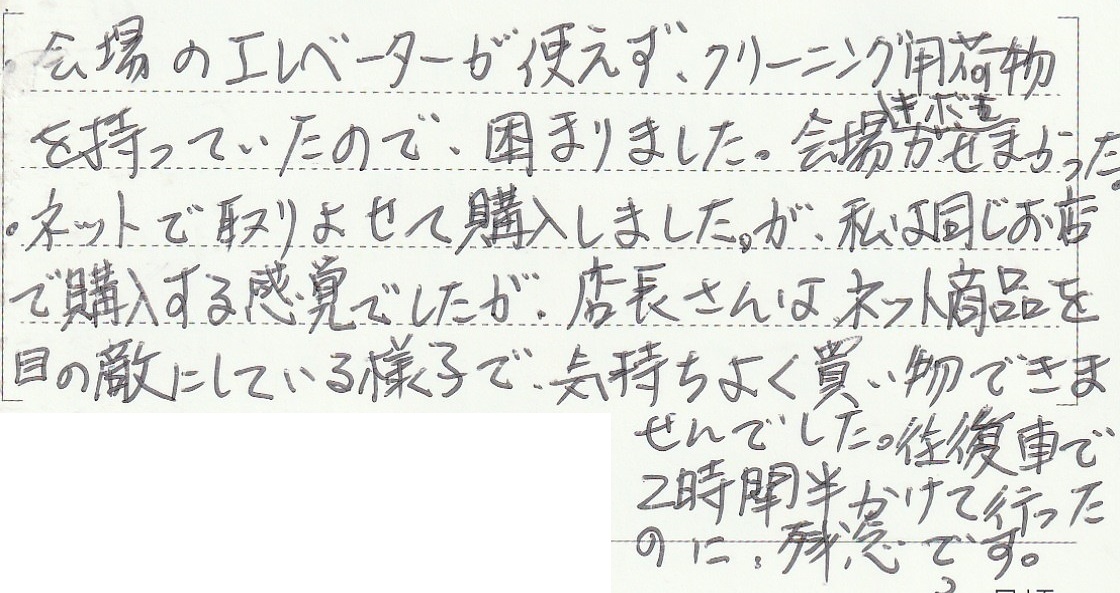 ・会場のエレベーターが使えず、クリーニング用荷物
を持っていたので、困りました。会場がせまかった。
・ネットで取りよせて購入しました。が、私は同じお店
で購入する感覚でしたが、店長さんはネット商品を
目の敵にしている様子で、気持ちよく買い物できま
せんでした。往復車で
2時間半かけて行った
のに、残念です。